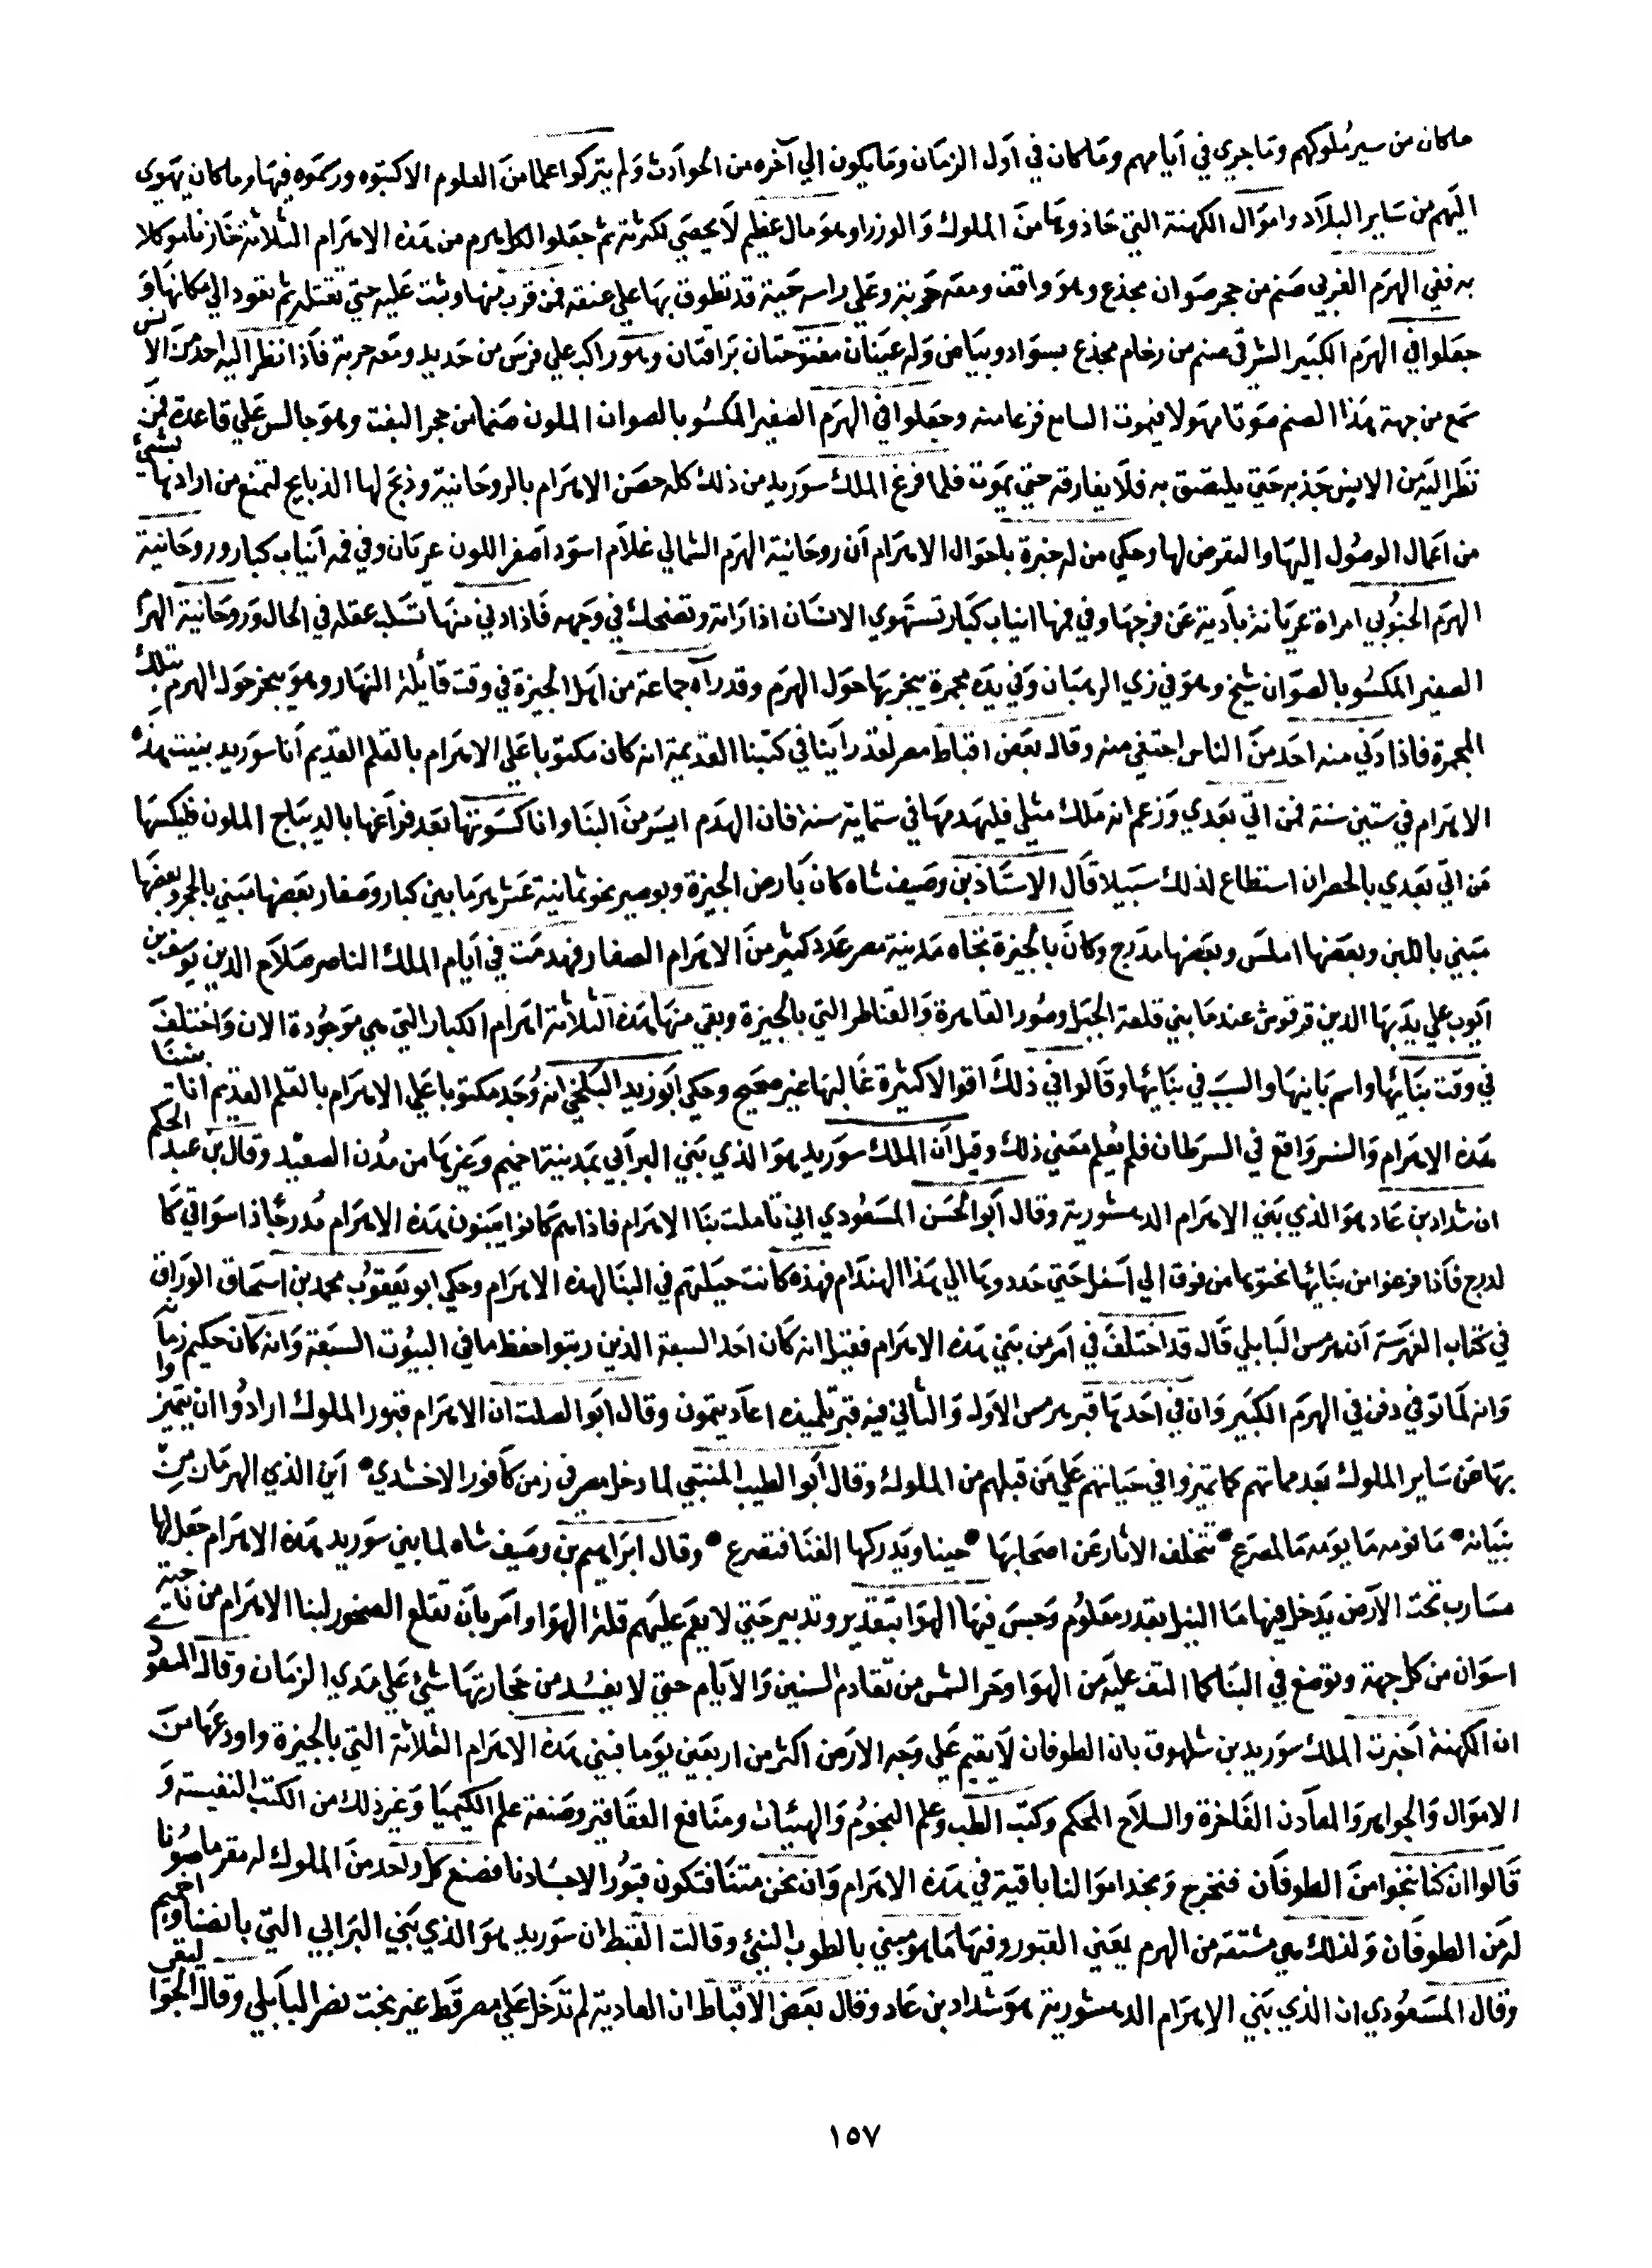 ماكان من سير ملوكهم وما جري في ايامهم وما كان في اول الزمان وما يكون الي آخره من الحوادث ولم يتركوا علما من العلوم الا كتبوه ورسموه فيها وما كان يهوي
اليهم من ساير البلاد واموال الكهنة التي حاذوها من الملوك والوزرا وهو مال عظيم لا يحصي لكثرته ثم جعلوا لكل هرم من هذه الاهرام الثلاثة خازنا موكلا
به ففي الهرم الغربي صنم من حجر صوان مجذع وهو واقف ومعه حربة وعلي راسه حية قد تطوق بها علي عنقه فمن قرب منها وثبت عليه حتي تقتله ثم تعود الي مكانها و
جعلوا في الهرم الكبير الشرقي صنم من رخام مجذع بسواد وبياض وله عينان مفتوحتان براقتان وهو راكب علي فرس من حديد ومعه حربة فاذا نظر اليه احد من الانس
سمع من جهة هذا الصنم صوتا مهولا فيموت السامع فزعا منه وجعلوا في الهرم الصغير المكسو بالصوان الملون صنما من حجر البفت وهو جالس علي قاعدة فمن
نظر اليه من الانس جذبه حتي يلتصق به فلا يفارقه حتي يموت فلما فرغ الملك سوريد من ذلك كله حصن الاهرام بالروحانية وذبح لها الذبايح لتمنع من ارادها بشئ
من اعمال الوصول اليها والتعرض لها وحكي من له خبرة باحوال الاهرام ان روحانية الهرم الشمالي غلام اسود اصفر اللون عريان وفي فمه انياب كبار وروحانية
الهرم الجنوبي امراة عريانة بادية عن فرجها وفي فمها انياب كبار تستهوي الانسان اذا راته وتضحك في وجهه فاذا دني منها تسلبه عقله في الحال وروحانية الهرم
الصغير المكسو بالصوان شيخ وهو في زي الرهبان وفي يده مجمرة يبخر بها حول الهرم وقد رآه جماعة من اهل الجيزة في وقت قائلة النهار وهو يبخر حول الهرم بتلك
المجمرة فاذا دني منه احد من الناس اختفي منه وقال بعض اقباط مصر لقد راينا في كتبنا القديمة انه كان مكتوبا علي الاهرام بالقلم القديم انا سوريد بنيت هذه
الاهرام في ستين سنة فمن اتي بعدي وزعم انه ملك مثلي فليهدمها في ستماية سنة فان الهدم ايسر من البنا وانا كسوتها بعد فراغها بالديباج الملون فليكسها
من اتي بعدي بالحصر ان استطاع لذلك سبيلا قال الاستاذ بن وصيف شاه كان بارض الجيزة وبوصير نحو ثمانية عشر هرما بين كبار وصغار بعضها مبني بالحجر وبعضها
مبني باللبن وبعضها املس وبعضها مدرج وكان بالجيزة تجاه مدينة مصر عدد كثير من الاهرام الصغار فهدمت في ايام الملك الناصر صلاح الدين يوسف بن
ايوب علي يد بها الدين قرقوش عندما بني قلعة الجبل وصور القاهرة والقناطر التي بالجيزة وبقي منها هذه الثلاثة اهرام الكبار التي هي موجودة الان واختلف
في وقت بنائها واسم بانيها والسبب في بنائها وقالوا في ذلك اقوالا كثيرة غالبها غير صحيح وحكي ابو زيد البلخي انه وجد مكتوبا علي الاهرام بالقلم القديم انا بنينا
هذه الاهرام والنسر واقع في السرطان فلم يعلم معني ذلك وقيل ان الملك سوريد هو الذي بني البرابي بمدينة اخميم وغيرها من مدن الصعيد وقال بن عبد الحكم
ان شداد بن عاد هو الذي بني الاهرام الدهشورية وقال ابو الحسن المسعودي اني تاملت بنا الاهرام فاذا هم كانوا يبنون هذه الاهرام مدرجا ذا سواقي كا
لدرج فاذا فرغوا من بنائها نحتوها من فوق الي اسفل حتي حددوها الي هذا الهندام فهذه كانت حيلتهم في البنا لهذه الاهرام وحكي ابو يعقوب محمد بن اسحاق الوراق
في كتاب الفهرسة ان هرمس البابلي قال قد اختلف في امر من بني هذه الاهرام فقيل انه كان احد السبعة الذين رتبوا حفظ ما في البيوت السبعة وانه كان حكيم زمانه
وانه لما توفي دفن في الهرم الكبير وان في احدها قبر هرمس الاول والثاني فيه قبر تلميذه اعاديمون وقال ابو الصلت ان الاهرام قبور الملوك ارادوا ان يتميزوا
بها عن ساير الملوك بعد مماتهم كما تميزوا في حياتهم علي من قبلهم من الملوك وقال ابو الطيب المتنبي لما دخل مصر في زمن كافور الاخشدي • اين الذي الهرمان من
بنيانه • ما قومه ما يومه ما المصرع • تتخلف الاثار عن اصحابها • حينا ويدركها الفنا فتصرع • وقال ابراهيم بن وصيف شاه لما بني سوريد هذه الاهرام جعل لها
مسارب تحت الارض يدخل فيها ما النيل بقدر معلوم وحبس فيها الهوا بتقدير وتدبير حتي لا يعم عليهم قلة الهوا وامر بان تقلع الصخور لبنا الاهرام من ناحية
اسوان من كل جهة وتوضع في البنا كما التف عليه من الهوا وحر الشمس من تقادم السنين والايام حتي لا يفسد من حجارتها شئ علي مدي الزمان وقال
ان الكهنة اخبرت الملك سوريد بن شلهوق بان الطوفان لا يقيم علي وجه الارض اكثر من اربعين يوما فبني هذه الاهرام الثلاثة التي بالجيزة واودعها من
الاموال والجواهر والمعادن الفاخرة والسلاح المحكم وكتب الطب وعلم النجوم والهيئات ومنافع العقاقير وصنعة علم الكيميا وغير ذلك من الكتب النفيسة و
قالوا ان كنا ننجوا من الطوفان فنخرج ونجد اموالنا باقية في هذه الاهرام وان نحن متنا فتكون قبورا لاجسادنا فصنع كل واحد من الملوك له مقرها صونا
له من الطوفان ولذلك هي مشتقه من الهرم يعني القبور وفيها ما هو مبني بالطوب النيئ وقالت القبط ان سوريد هو الذي بني البرابي التي بانصنا واخميم
وقال المسعودي ان الذي بني الاهرام الدهشورية هو شداد بن عاد وقال بعض الاقباط ان العادية لم تدخل علي مصر قط غير بخت نصر البابلي وقال الجوانيقي
١٥٧